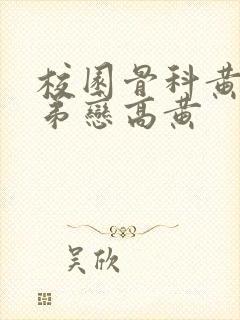 校園骨科黄
弟戀高黄
吴欣